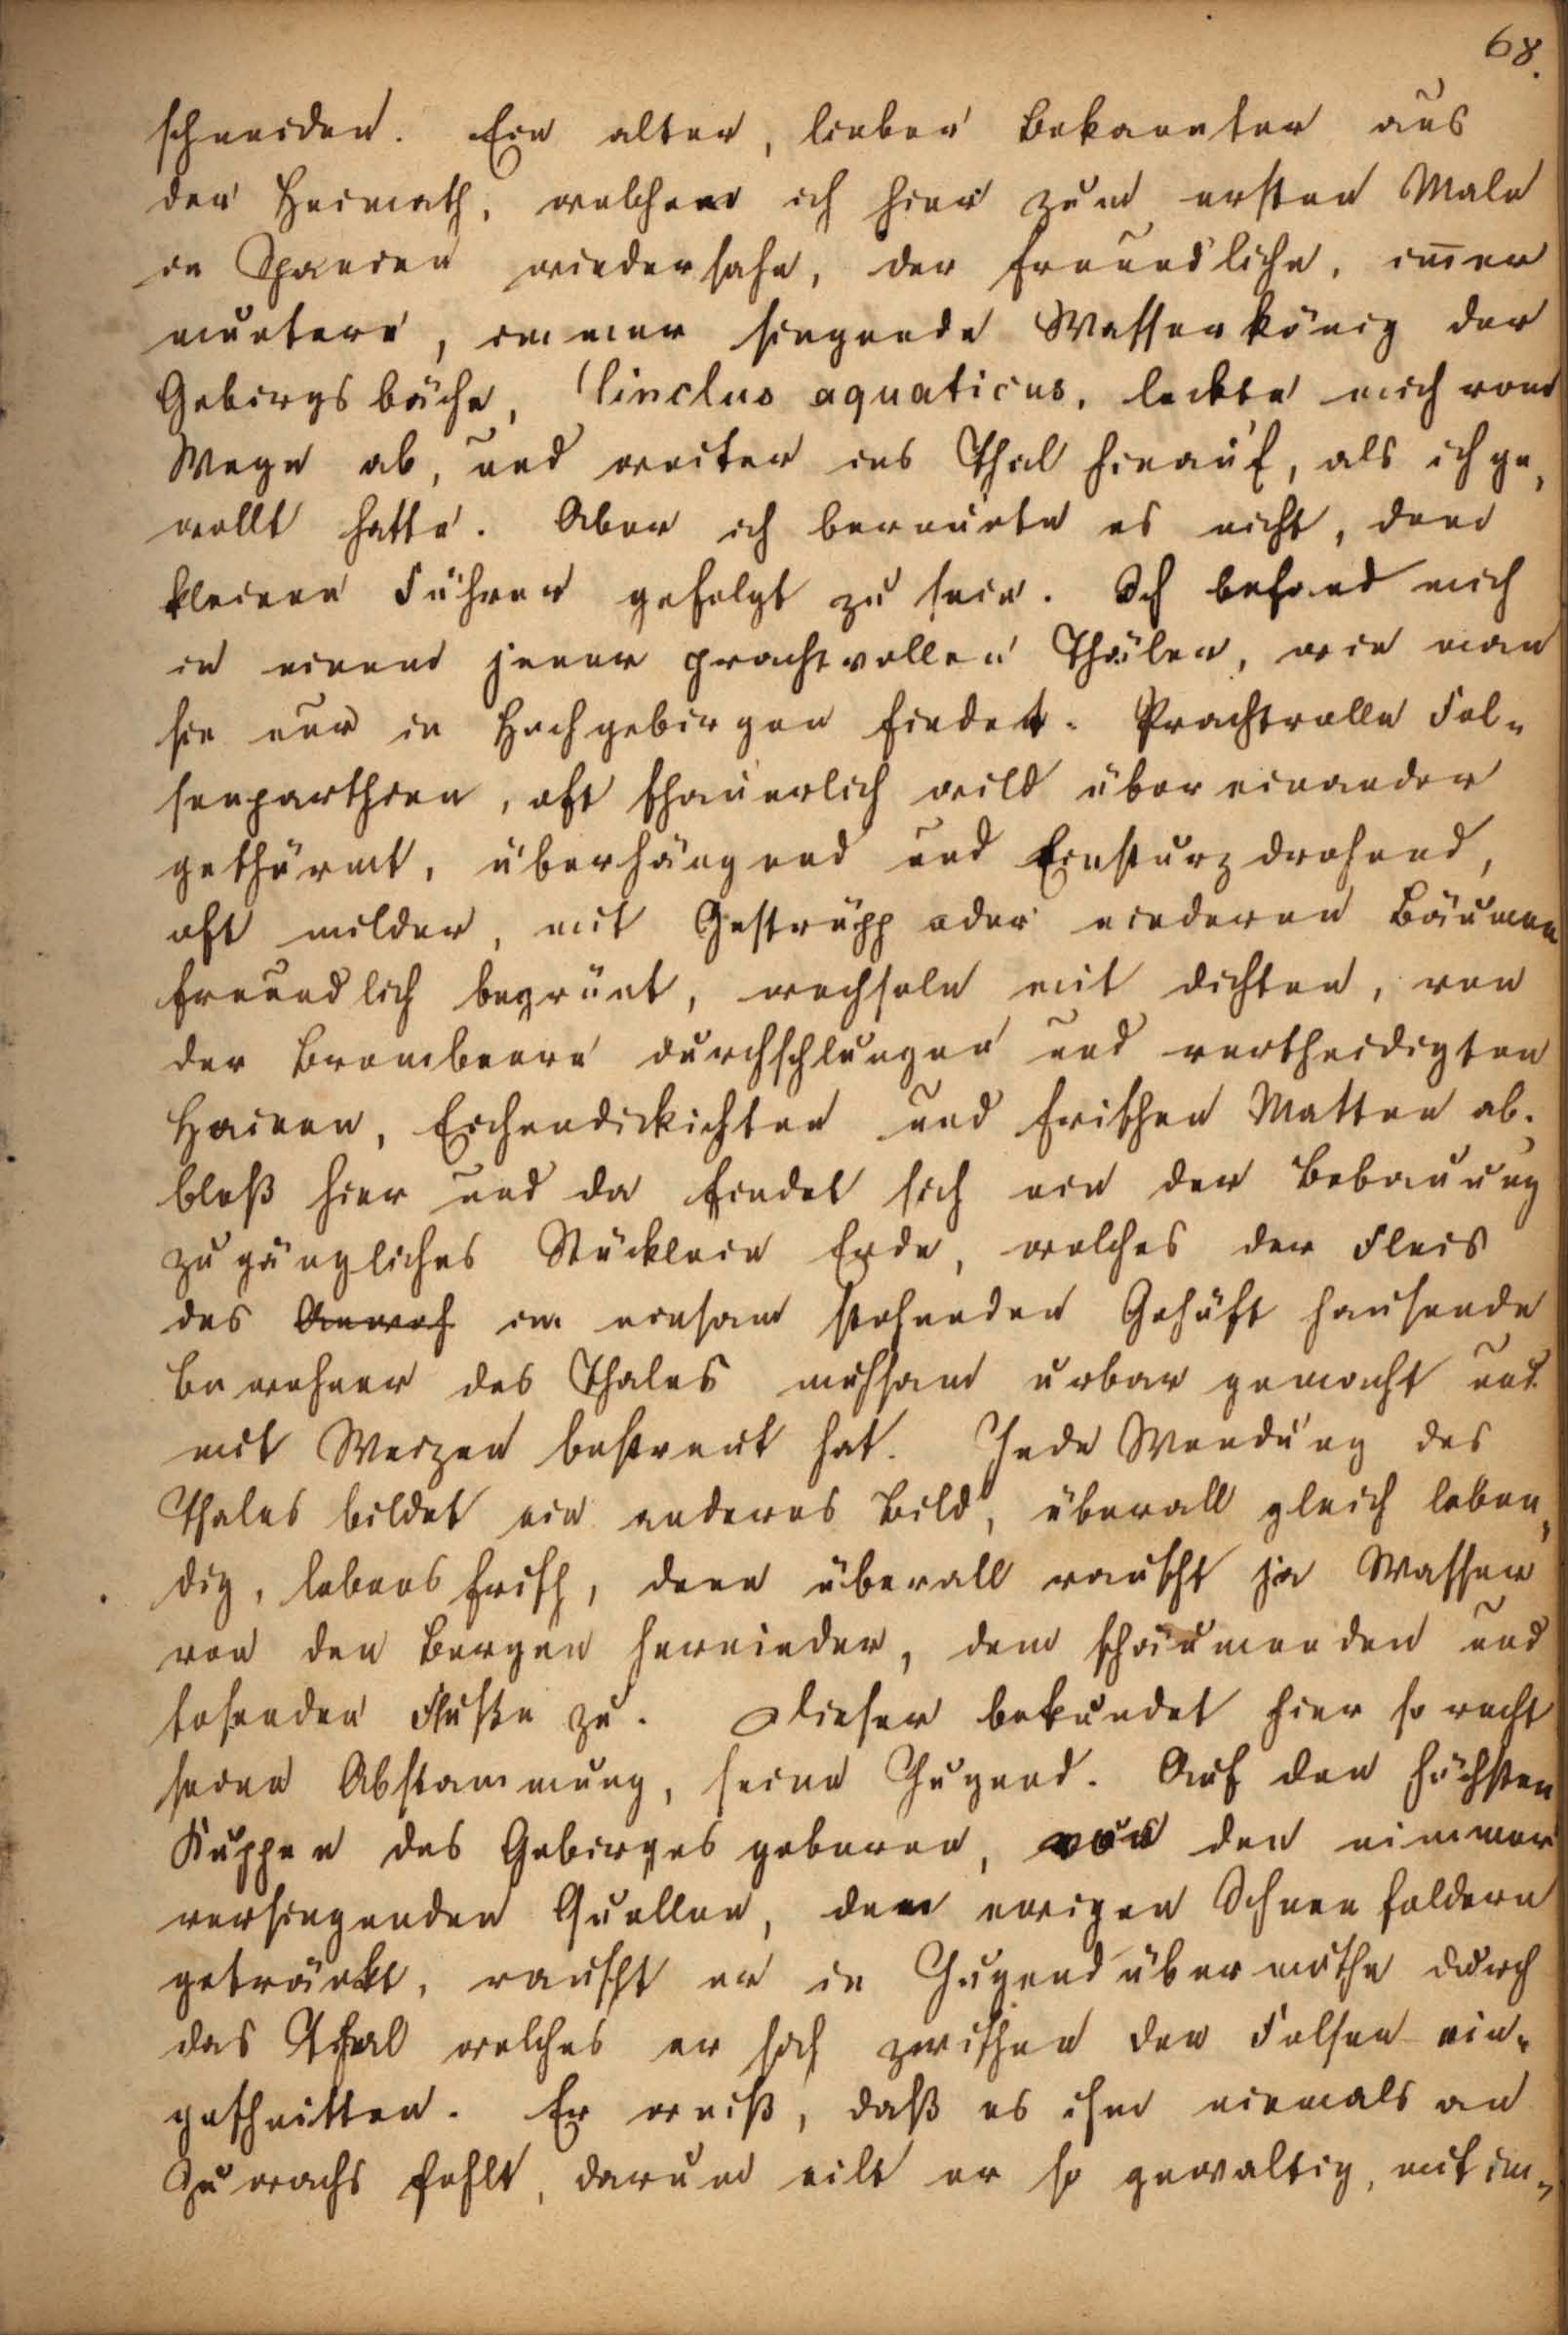 68.
schneiden. Ein alter, lieber Bekannter aus
der Heimath, welchen ich hier zum ersten Male
in Spanien wiedersahe, der freundliche, im̅er
muntere, immer singende Wasserkönig der
Gebirgsbäche, Cinclus aquaticus, lockte mich vom
Wege ab, und weiter ins Thal hinauf, als ich ge,
wollt hatte. Aber ich bereute es nicht, dem
kleinen Führer gefolgt zu sein. Ich befand mich
in einem jener prachtvollen Thäler, wie man
sie nur in Hochgebirgen findet. Prachtvolle Fel-
senparthien, oft schauerlich wild über einander
gethürmt, überhängend und Einsturz drohend,
oft milder, mit Gestrüpp oder niederen Bäumen
freundlich begrünt, wechseln mit dichten, von
der Brombeere durchschlungen und vertheidigten
Hainen, Eichendickichten und frischen Matten ab.
bloß hier und da findet sich ein der Bebauung
zugängliches Stücklein Erde, welches der Fleis
des Anwoh im einsam stehenden Gehöft hausende
Bewohner des Thales mühsam urbar gemacht und
mit Weizen bestreut hat. Jede Wendung des
Thales bildet ein anderes Bild, überall gleich leben,
dig, lebensfrisch, denn überall rauscht ja Wasser
von den Bergen hernieder, dem schäumenden und
tosenden Fluße zu. Dieser bekundet hier so recht
seine Abstammung, seine Jugend. Auf den höchsten
Kuppen des Gebirges geboren, von den nimmer
versiegenden Quellen, den ewigen Schneefeldern
getränkt, rauscht er in Jugendübermuthe durch
das Thal welches er sich zwischen den Felsen ein-
geschnitten. Er weiß, daß es ihm niemals an
Zuwachs fehlt, darum eilt er so gewaltig, mit im-